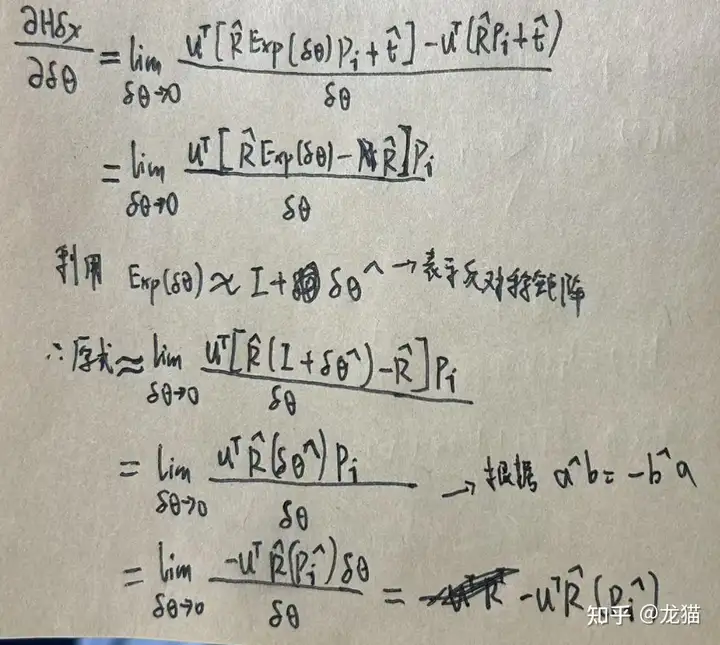 ∂Hδx/∂δθ = lim_{δθ→0} (uᵀ[R̂ Exp(δθ) Pᵢ + t̂] - uᵀ(R̂Pᵢ + t̂)) / δθ
= lim_{δθ→0} (uᵀ[R̂ Exp(δθ) - R̂]Pᵢ) / δθ
利用 Exp(δθ) ≈ I + δθ^ → 表示反对称矩阵
∴ 原式 ≈ lim_{δθ→0} (uᵀ[R̂(I + δθ^) - R̂]Pᵢ) / δθ
= lim_{δθ→0} (uᵀR̂(δθ^)Pᵢ) / δθ → 根据 a^b = -b^a
= lim_{δθ→0} (-uᵀR̂(Pᵢ^)δθ) / δθ = -uᵀR̂(Pᵢ^)
知乎 @龙猫